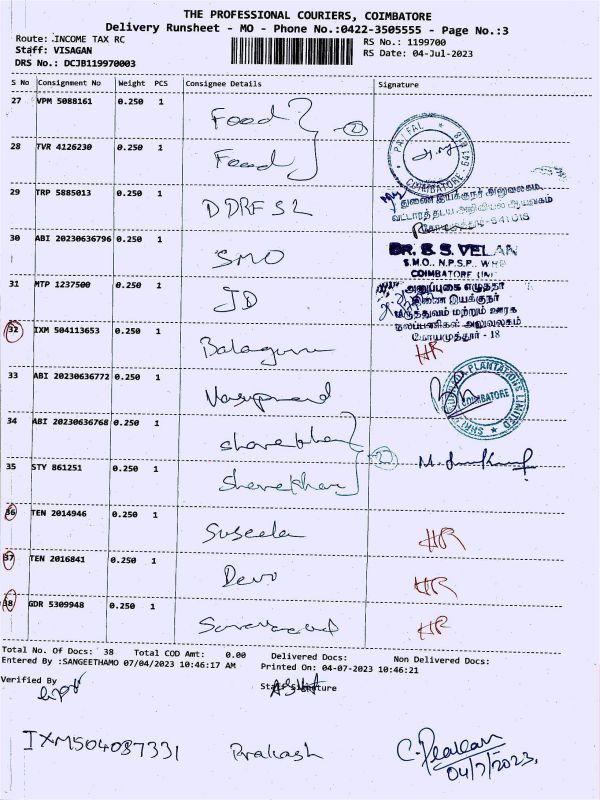 THE PROFESSIONAL COURIERS, COIMBATORE
Delivery Runsheet - MO - Phone No.:0422-3505555 - Page No.:3
Route: INCOME TAX RC
RS No.: 1199700
Staff: VISAGAN
RS Date: 04-Jul-2023
DRS No.: DCJB119970003
S No Consignment No Weight PCS Consignee Details Signature
27 VPM 5088161 0.250 1 Food
28 TVR 4126230 0.250 1 Food
COIMBATORE - 641 018
29 TRP 5885013 0.250 1 DDRF S2
துணை இயக்குநர் அலுவலகம்
30 ABI 20230636796 0.250 1 SMO
DR. S. S. VELAN
S.M.O., N.P.S.P., WHO
COIMBATORE UNIT
31 MTP 1237500 0.250 1 JD
இணை இயக்குநர்
மருத்துவம் மற்றும் ஊரக
நலப்பணிகள் அலுவலகம்
கோயமுத்தூர் - 18
32 IXM 504113653 0.250 1 Balaguru HR
33 ABI 20230636772 0.250 1
PLANTATIONS LIMITED
COIMBATORE
34 ABI 20230636768 0.250 1 Sharekhan
35 STY 861251 0.250 1 Sharekhan
36 TEN 2014946 0.250 1 Suseela HR
37 TEN 2016841 0.250 1 Devo HR
38 GDR 5309948 0.250 1 HR
Total No. Of Docs: 38 Total COD Amt: 0.00 Delivered Docs: Non Delivered Docs:
Entered By :SANGEETHAMO 07/04/2023 10:46:17 AM Printed On: 04-07-2023 10:46:21
Verified By Staff Signature
IXM504087331 Prakash
04/7/2023,